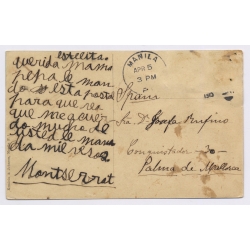 querida mama
pepa le man
do esta posta
para que vea
que me acuer
do mucho de
usted le manda
da mil besos
Montserrat
MANILA
APR 5
3 PM
P.
Spain
Sra Da Josefa Rufino
Conquistador 30
Palma de Mallorca